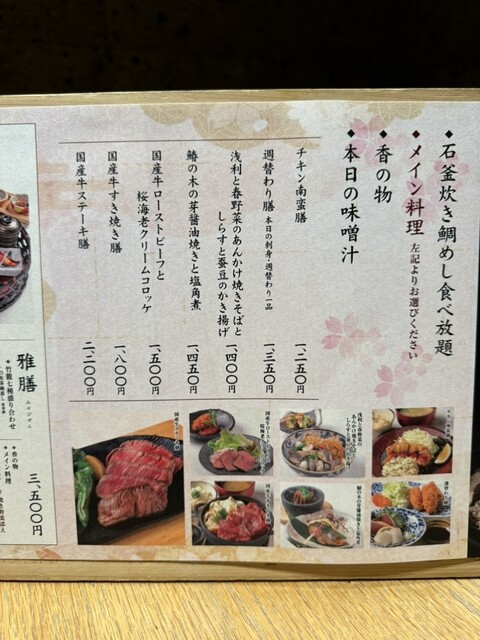 ◆石釜炊き鯛めし食べ放題
◆メイン料理 左記よりお選びください
◆香の物
◆本日の味噌汁
チキン南蛮膳 一、二五〇円
週替わり膳 本日の刺身・週替わり一品 一、三五〇円
浅利と春野菜のあんかけ焼きそばと
しらすと蚕豆のかき揚げ 一、四〇〇円
鰆の木の芽醤油焼きと塩角煮 一、四五〇円
国産牛ローストビーフと
桜海老クリームコロッケ 一、五〇〇円
国産牛すき焼き膳 一、八〇〇円
国産牛ステーキ膳 二、二〇〇円
浅利と春野菜の
あんかけ焼きそばと
雅膳
みやびぜん
◆竹籠七種盛り合わせ
◆香の物
◆メイン料理
三、五〇〇円